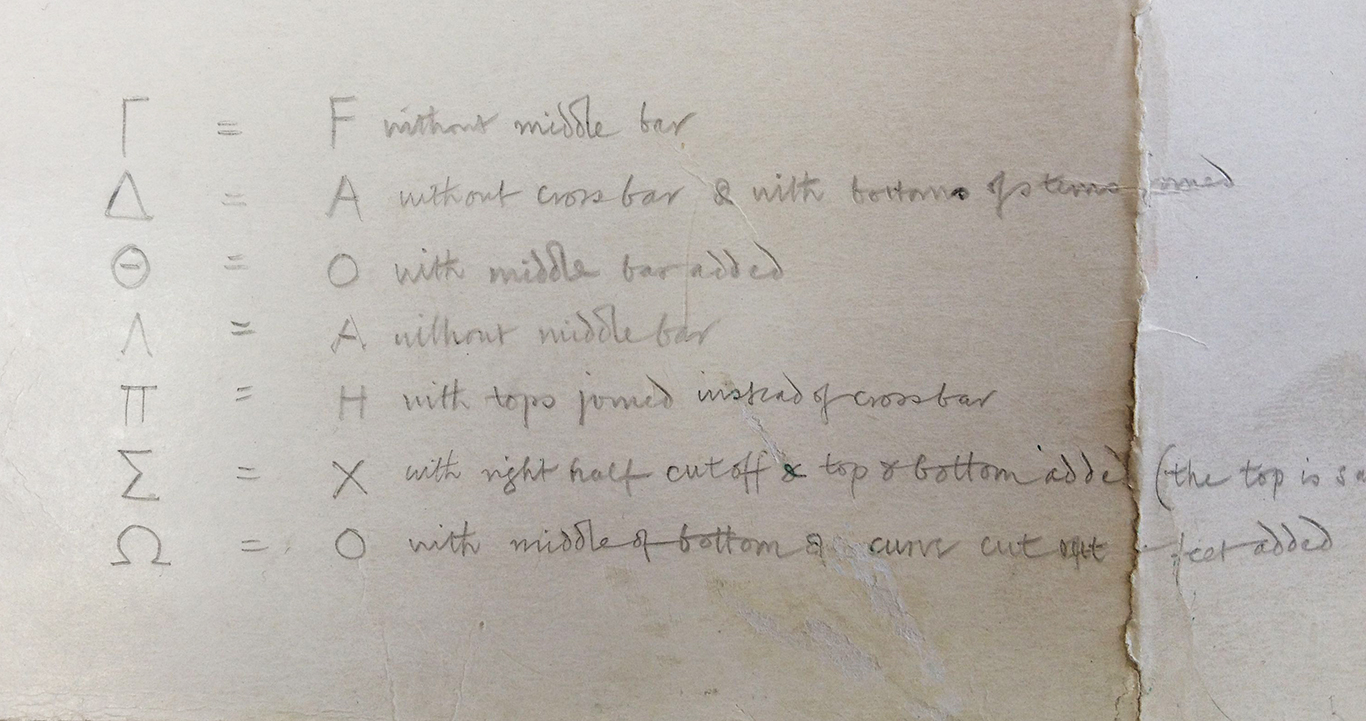 Γ = F without middle bar
Δ = A without crossbar & with bottoms of stems joined
Θ = O with middle bar added
Λ = A without middle bar
Π = H with tops joined instead of crossbar
Σ = X with right half cut off & top & bottom added (the top is
Ω = O with middle of bottom curve cut feet added